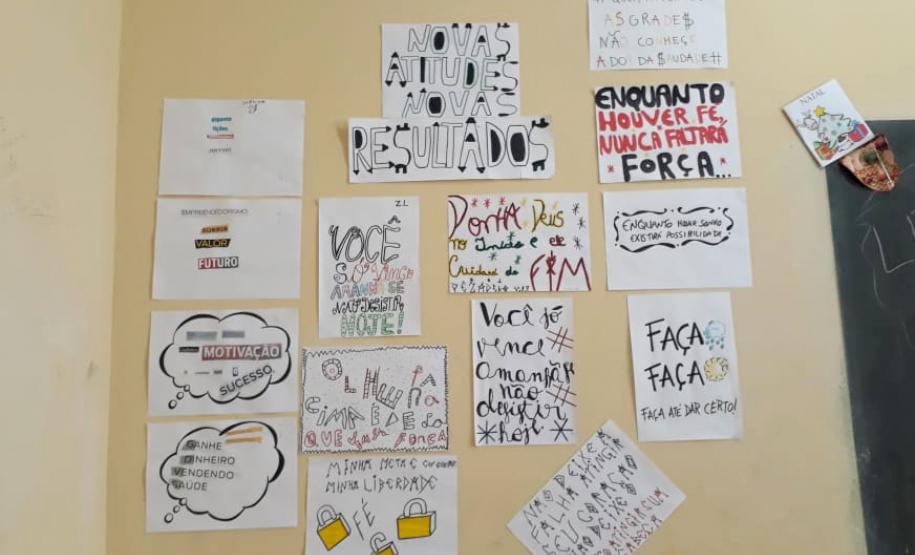 NOVAS
ATITUDES
NOVAS
RESULTADOS
AS GRADE$
NÃO CONHEÇE
A DOR DA $AUDADE#
ENQUANTO
HOUVER FÉ,
NUNCA FALTARÁ
FORÇA...
NATAL
EMPREENDEDORISMO
SONHAR
VALOR
FUTURO
Z.L
VOCÊ
SÓ VENCE
AMANHÃ SE
NÃO DESISTIR
HOJE!
PONHA DEUS
no Início e ele
Cuidará do
FIM
ENQUANTO HOUVER SONHO
EXISTIRÁ POSSIBILIDADE
MOTIVAÇÃO
SUCESSO
OLHE PRA
CIMA É DE Lá
QUE VEM FORÇA
Você só
vence #
amanhã se
não #
desistir
*hoje*
FAÇA
FAÇA
FAÇA ATÉ DAR CERTO!
GANHE
DINHEIRO
VENDENDO
SAÚDE
MINHA META É
MINHA LIBERDADE
FÉ
NÃO DEIXE A
FALHA ATINGIR
SEU CORAÇÃO
NÃO DEIXE O